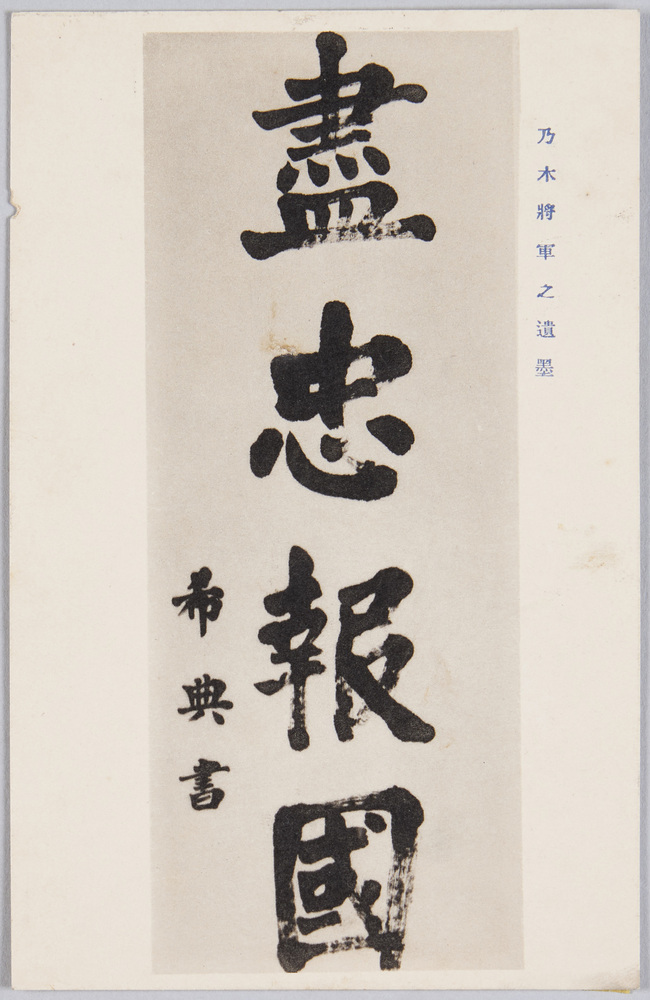 乃木將軍之遺墨
盡忠報國
希典書